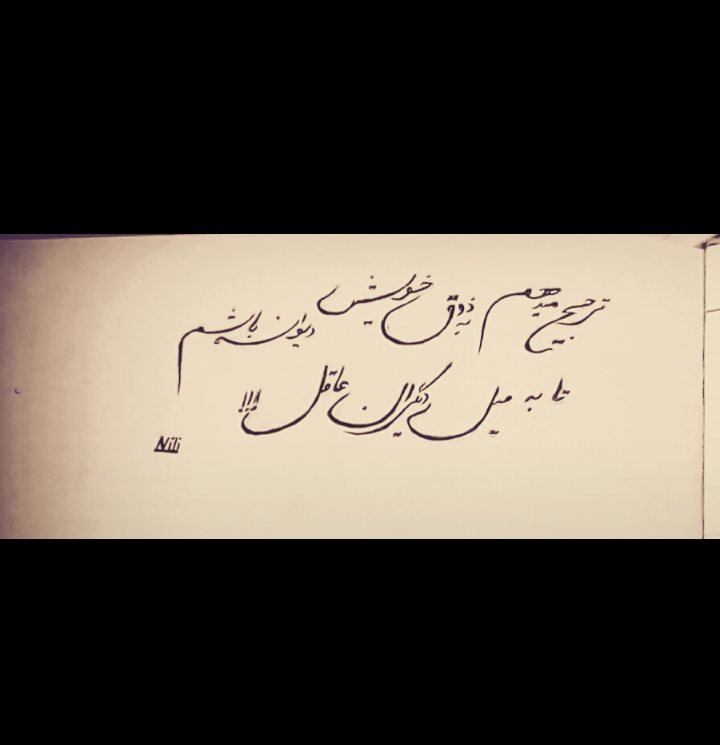 ترجیح میدهم به ذوق خویش دیوانه باشم
تا به میل دیگران عاقل!!!
Nili